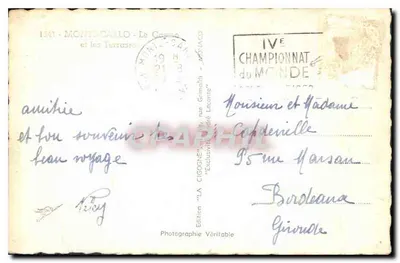 130 - MONTE-CARLO - Le Casino
et les Terrasses
MONTE-CARLO
IVE
CHAMPIONNAT
du MONDE
amitié
et bon souvenir des
beau voyage
Monsieur et Madame
Capdeville
95 rue Marsan
Bordeaux
Gironde
Edition "LA CIGOGNE"
Photographie Véritable
CPAPHIL